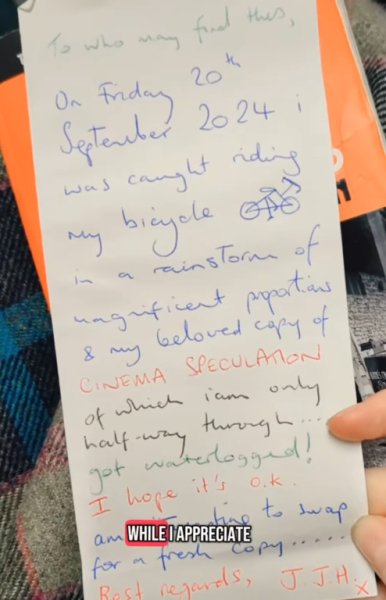 To who may find this,
On Friday 20th
September 2024 i
was caught riding
my bicycle
in a rainstorm of
magnificent proportions
& my beloved copy of
CINEMA SPECULATION
of which i am only
half-way through...
got waterlogged!
I hope it's o.k.
am to swap
WHILE I APPRECIATE
for a fresh copy.....
Best regards, J.J.H. x